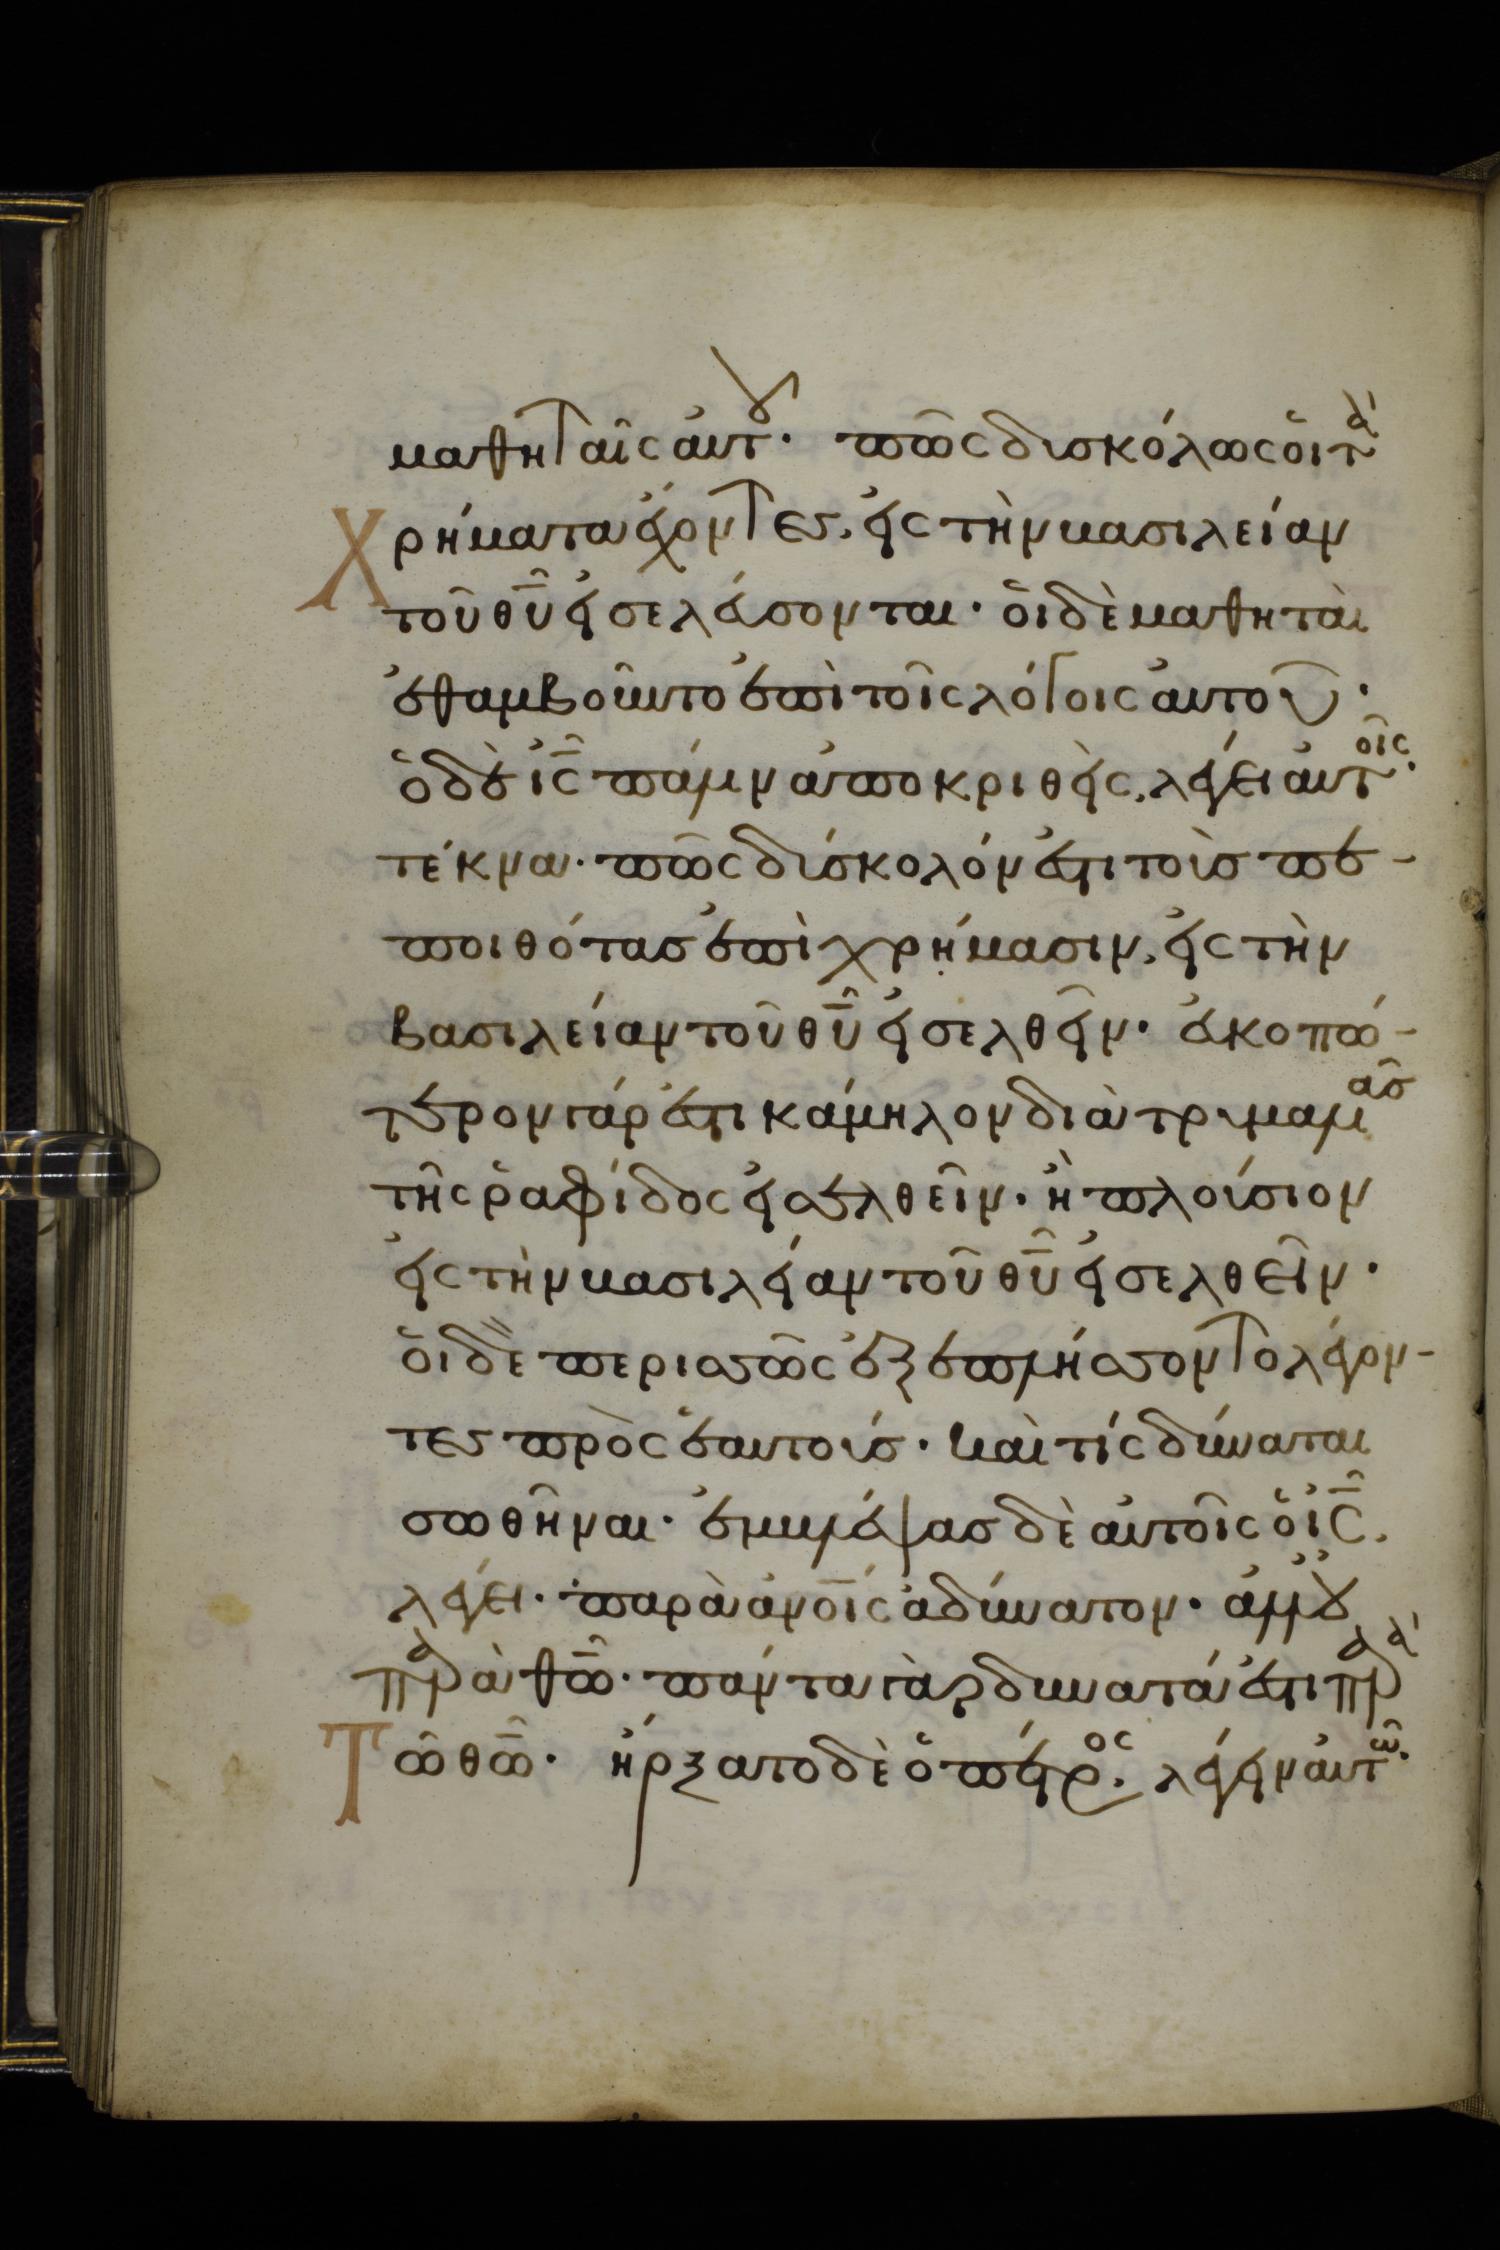 μαθηταῖς ἀυτου· πῶς δισκόλως ὁι τὰ
Χρήματα ἔχοντες, εἰς τὴν βασιλείαν
τοῦ θῦ εἰσελεύσονται· ὁι δὲ μαθηταὶ
ἐθαμβοῦντο ἐπὶ τοῖς λόγοις ἀυτοῦ·
ὁ δὲ ἰς πάλιν ἀποκριθεὶς, λέγει ἀυτοῖς·
τέκνα· πῶς δύσκολόν ἐστι τοὺσ πε-
ποιθότασ ἐπὶ χρήμασιν, εἰς τὴν
βασιλείαν τοῦ θῦ εἰσελθεῖν· ἐυκοπώ-
τερον γάρ ἐστι κάμηλον διὰ τρυμαλιᾶσ
τῆς ῥαφίδος εἰσελθεῖν· ἢ πλούσιον
εἰς τὴν βασιλείαν τοῦ θῦ εἰσελθεῖν·
ὁι δὲ περισσῶς ἐξεπλήσσοντο λέγον-
τες πρὸς ἑαυτούσ· καὶ τίς δύναται
σωθῆναι· ἐμβλέψασ δὲ ἀυτοῖς ὁ ἰς,
λέγει· παρὰ ἀνοῖς ἀδύνατον· ἀλλ' οὐ
παρὰ θῶ· πάντα γὰρ δυνατά ἐστι παρὰ
Τῶ θῶ· ἤρξατο δὲ ὁ πέτρος, λέγειν ἀυτῶ·